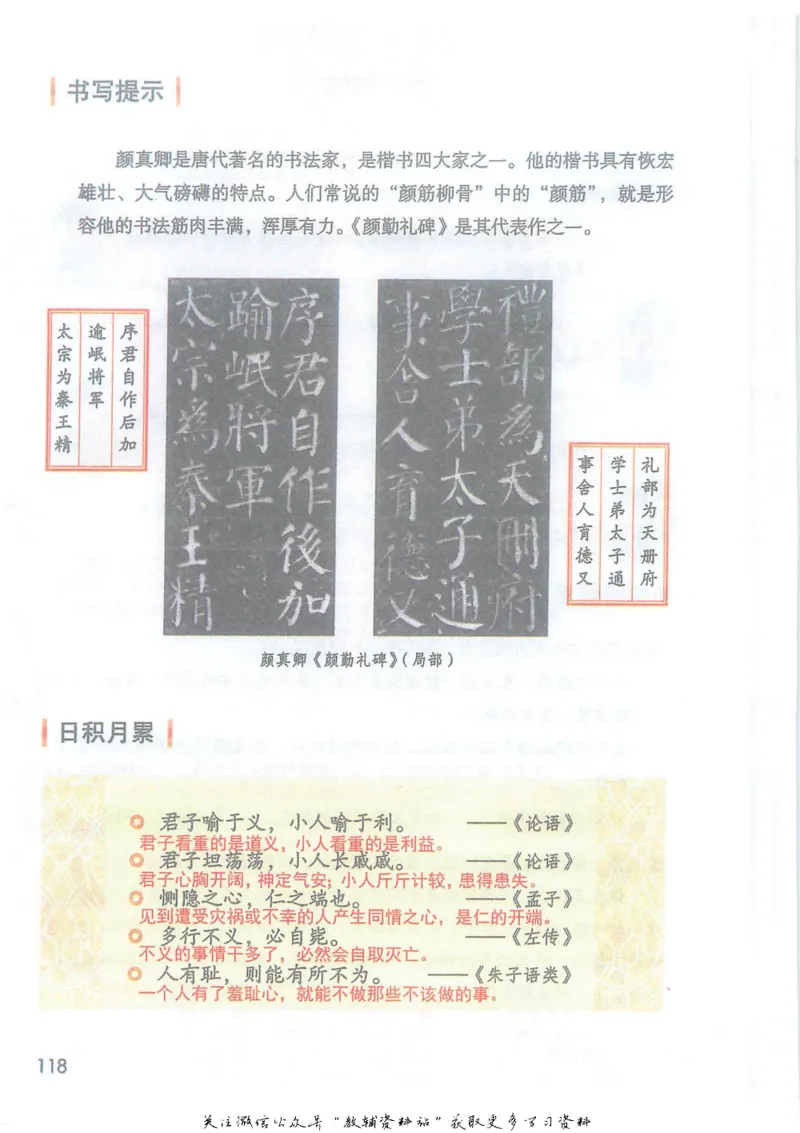 书写提示
颜真卿是唐代著名的书法家，是楷书四大家之一。他的楷书具有恢宏
雄壮、大气磅礴的特点。人们常说的“颜筋柳骨”中的“颜筋”，就是形
容他的书法筋肉丰满，浑厚有力。《颜勤礼碑》是其代表作之一。
禮部為天冊府
學士弟太子通
事舍人育德又
序君自作後加
踰岷將軍
太宗為秦王精
礼部为天册府
学士弟太子通
事舍人育德又
序君自作后加
逾岷将军
太宗为秦王精
颜真卿《颜勤礼碑》（局部）
日积月累
君子喻于义，小人喻于利。 ——《论语》
君子看重的是道义，小人看重的是利益。
君子坦荡荡，小人长戚戚。 ——《论语》
君子心胸开阔，神定气安；小人斤斤计较，患得患失。
恻隐之心，仁之端也。 ——《孟子》
见到遭受灾祸或不幸的人产生同情之心，是仁的开端。
多行不义，必自毙。 ——《左传》
不义的事情干多了，必然会自取灭亡。
人有耻，则能有所不为。 ——《朱子语类》
一个人有了羞耻心，就能不做那些不该做的事。
118
关注微信公众号“教辅资料站”获取更多学习资料